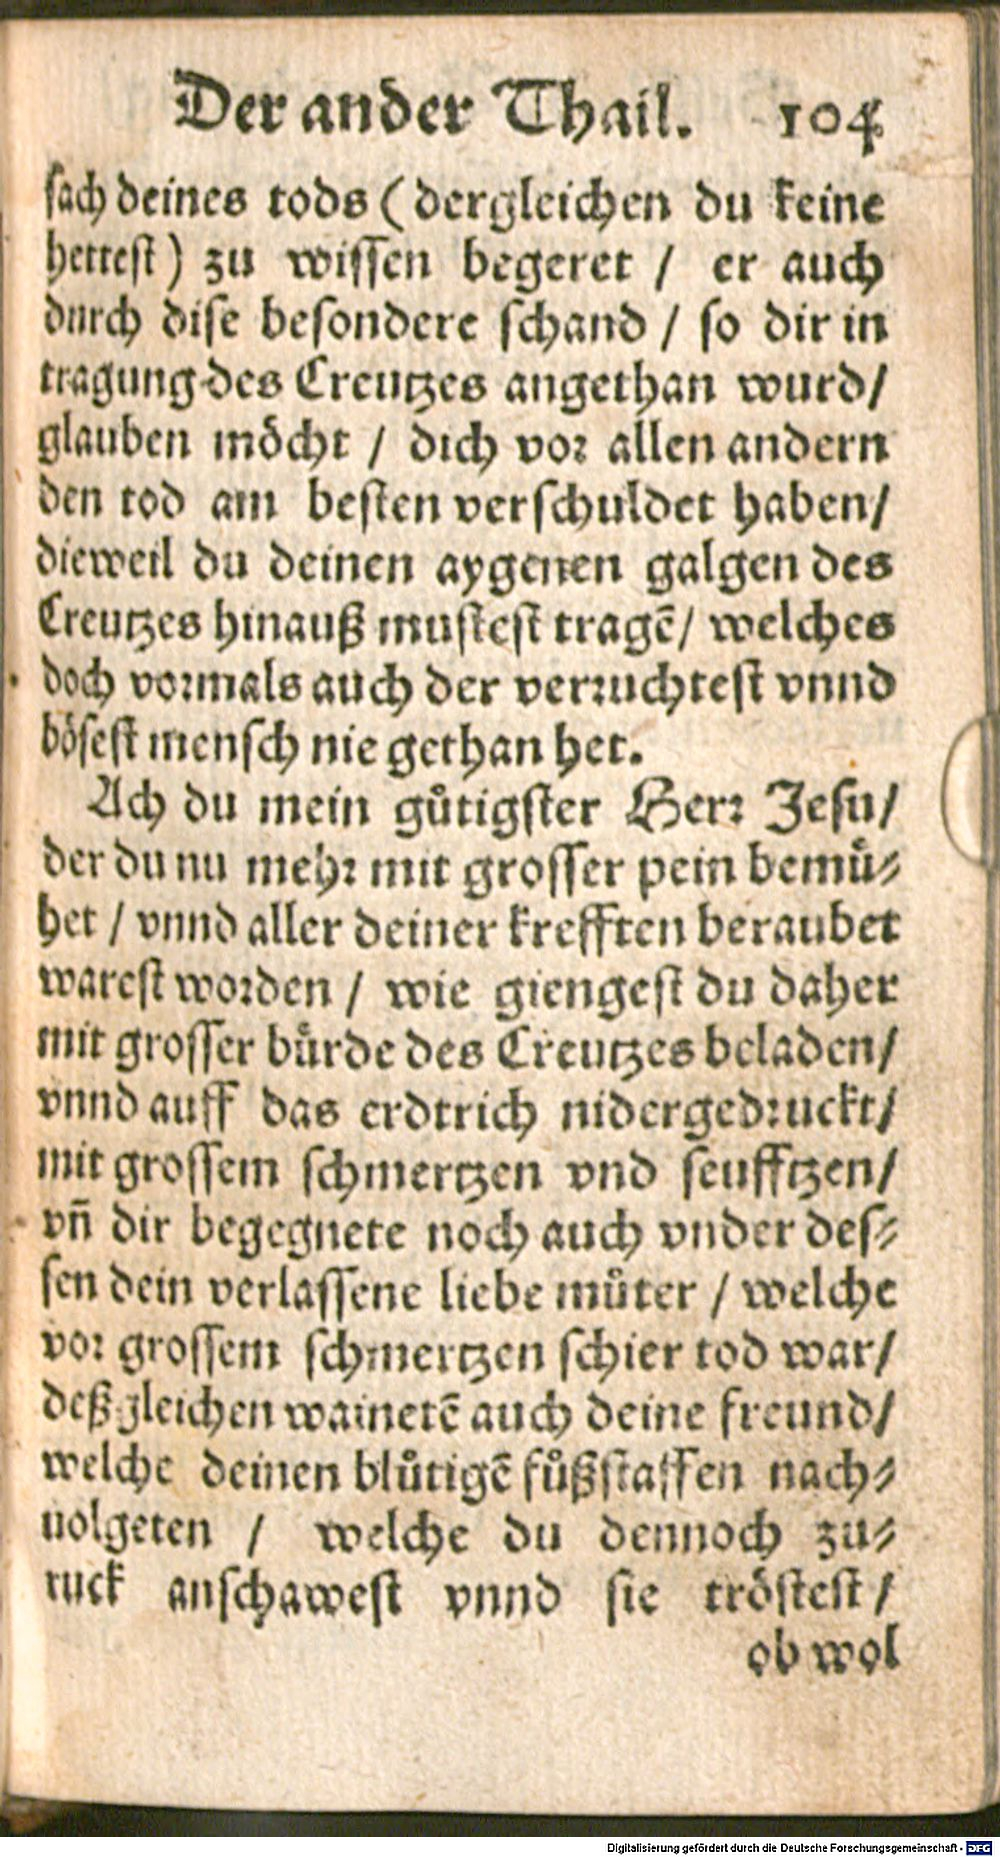 Der ander Thail. 104
sach deines tods (dergleichen du keine
hettest) zu wissen begeret / er auch
durch dise besondere schand / so dir in
tragung des Creutzes angethan wurd/
glauben möcht / dich vor allen andern
den tod am besten verschuldet haben/
dieweil du deinen aygenen galgen des
Creutzes hinauß mustest tragē/ welches
doch vormals auch der verruchtest vnnd
bösest mensch nie gethan het.
Ach du mein guͤtigster Herr Jesu/
der du nu mehr mit grosser pein bemuͤ⸗
het / vnnd aller deiner krefften beraubet
warest worden / wie giengest du daher
mit grosser buͤrde des Creutzes beladen/
vnnd auff das erdtrich nidergedruckt/
mit grossem schmertzen vnd seufftzen/
vn̄ dir begegnete noch auch vnder des⸗
sen dein verlassene liebe muͤter / welche
vor grossem schmertzen schier tod war/
deßgleichen wainetē auch deine freund/
welche deinen bluͤtigē fuͤßstaffen nach⸗
uolgeten / welche du dennoch zu⸗
ruck anschawest vnnd sie tröstest /
ob wol
Digitalisierung gefördert durch die Deutsche Forschungsgemeinschaft - DFG